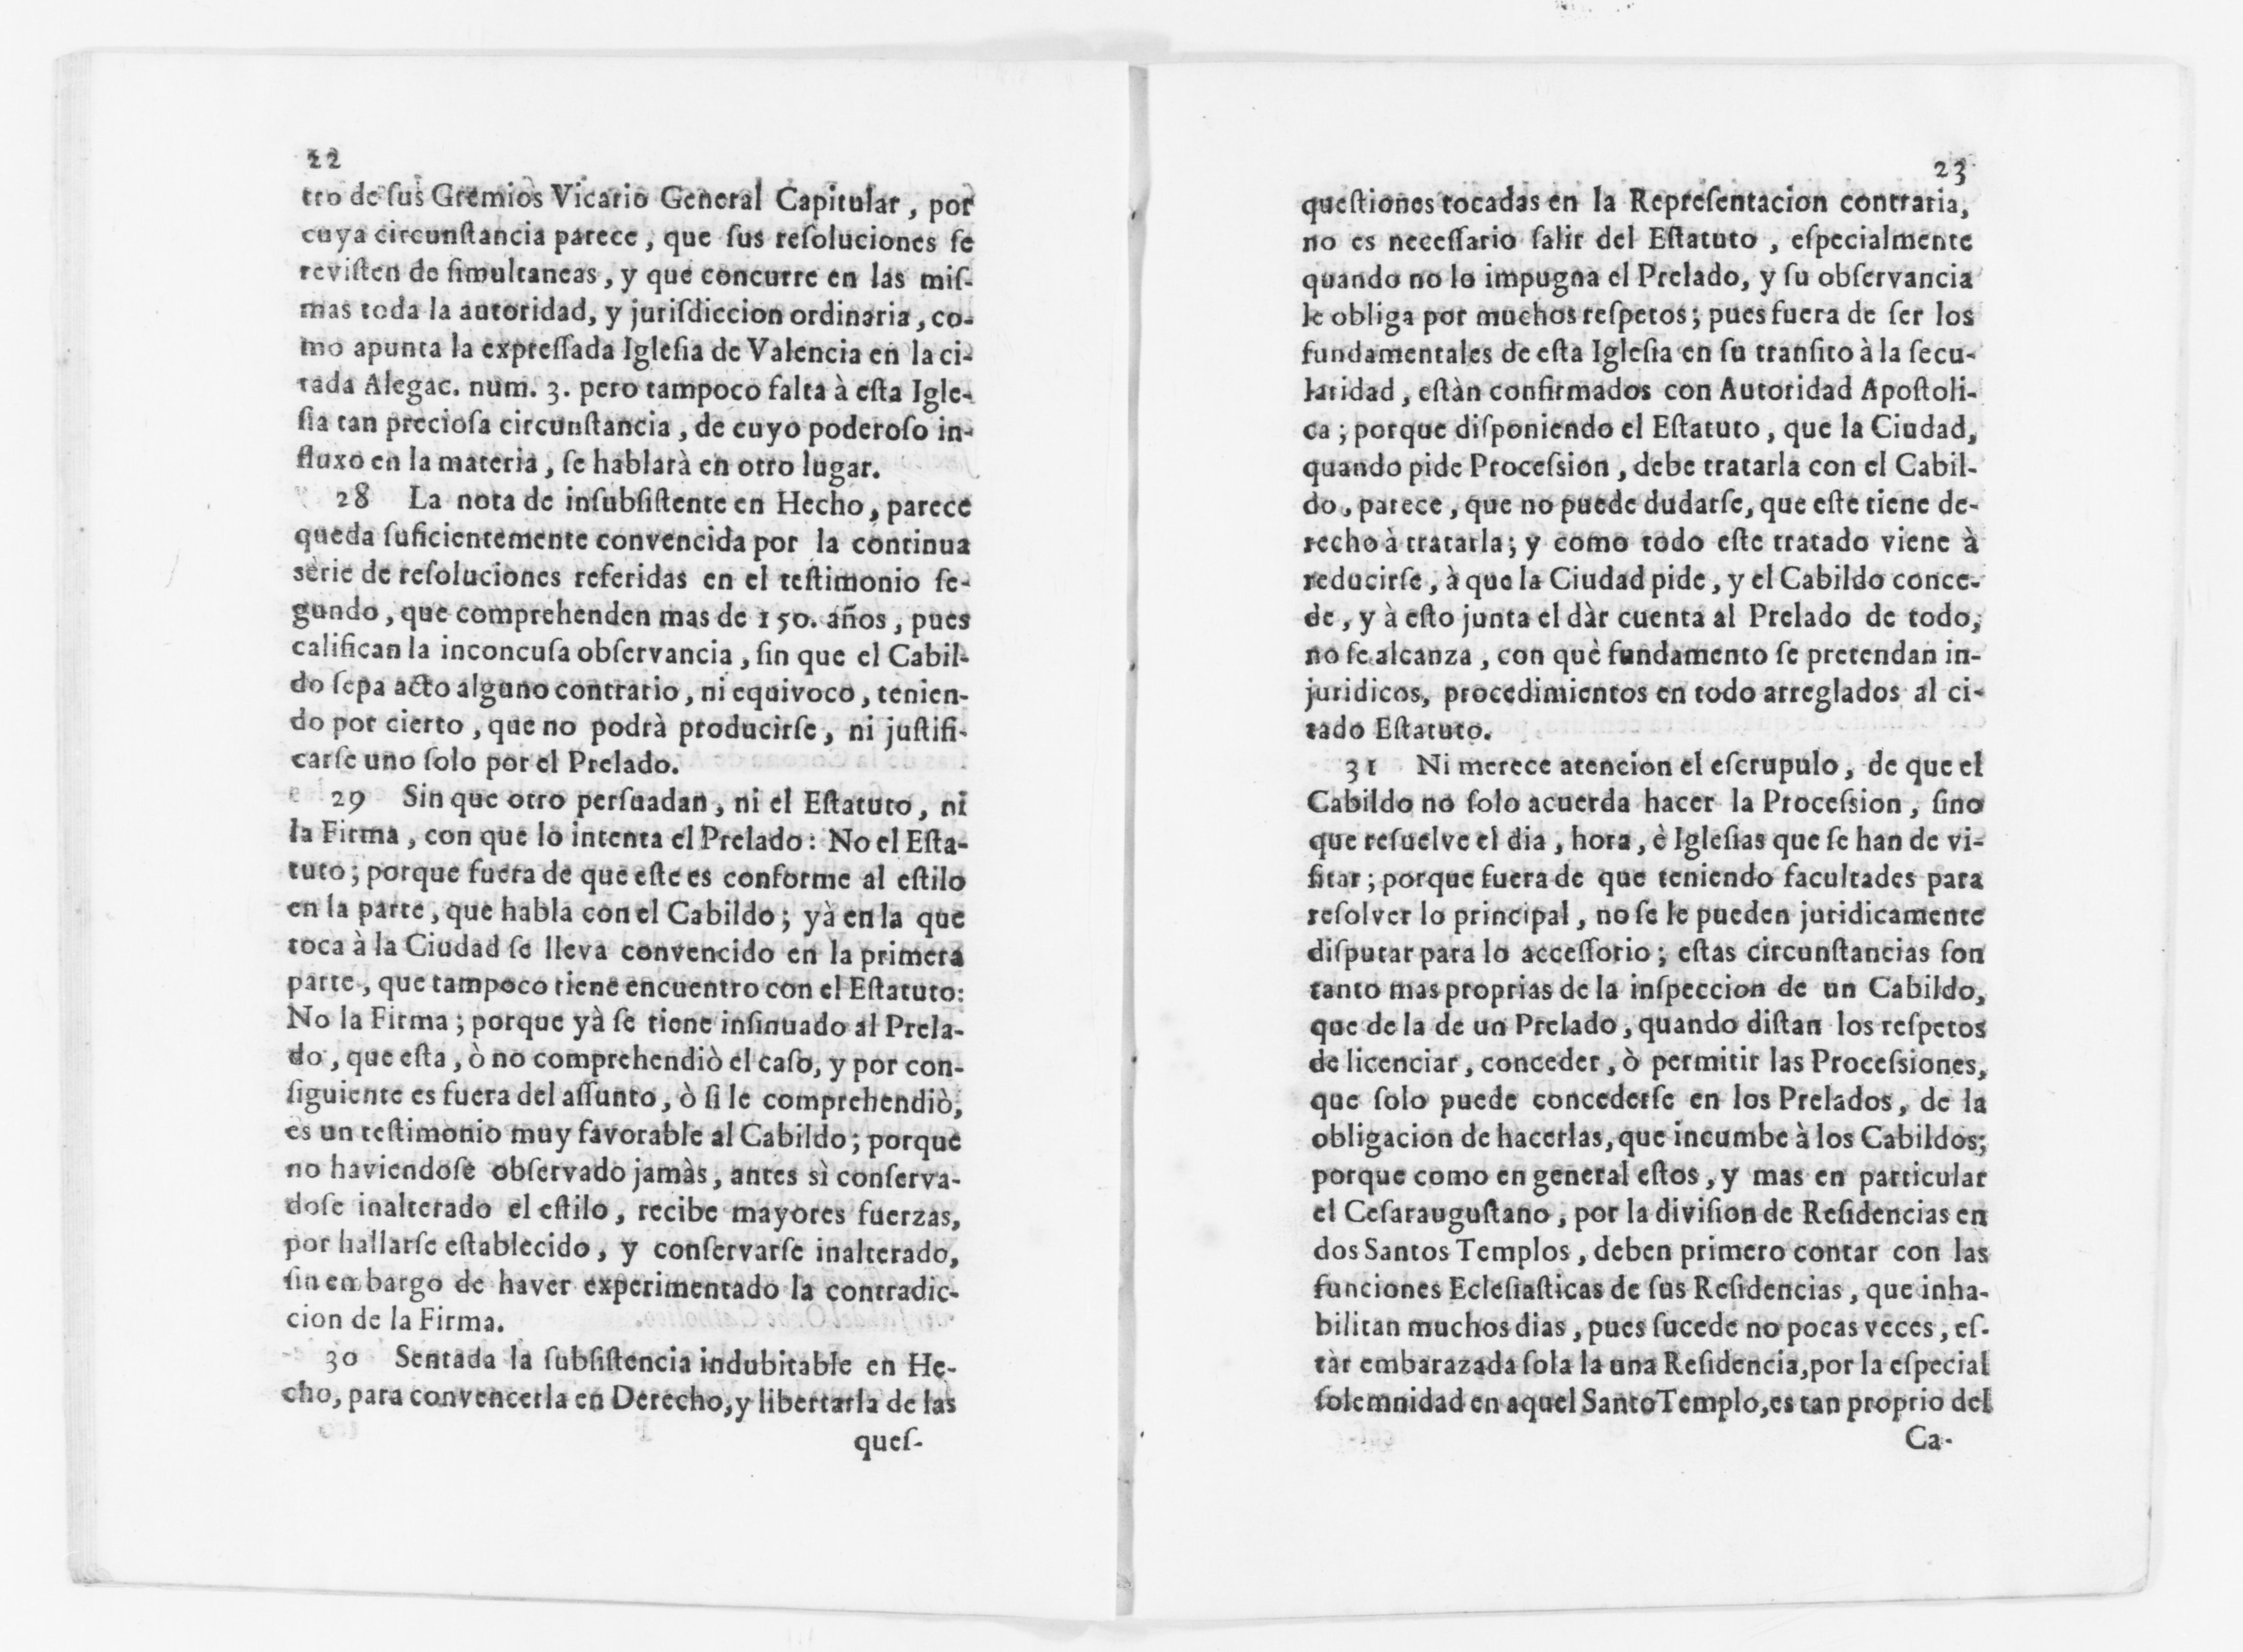 22
tro de ſus Gremios Vicario General Capitular, por
cuya circunſtancia parece, que ſus reſoluciones ſe
reviſten de ſimultaneas, y que concurre en las miſ-
mas toda la autoridad, y juriſdiccion ordinaria, co-
mo apunta la expreſſada Igleſia de Valencia en la ci-
tada Alegac. num. 3. pero tampoco falta à eſta Igle-
ſia tan precioſa circunſtancia, de cuyo poderoſo in-
fluxo en la materia, ſe hablarà en otro lugar.
28 La nota de inſubſiſtente en Hecho, parece
queda ſuficientemente convencida por la continua
serie de reſoluciones referidas en el teſtimonio ſe-
gundo, que comprehenden mas de 150. años, pues
califican la inconcuſa obſervancia, ſin que el Cabil-
do ſepa acto alguno contrario, ni equivoco, tenien-
do por cierto, que no podrà producirſe, ni juſtifi-
carſe uno ſolo por el Prelado.
29 Sin que otro perſuadan, ni el Eſtatuto, ni
la Firma, con que lo intenta el Prelado: No el Eſta-
tuto; porque fuera de que eſte es conforme al eſtilo
en la parte, que habla con el Cabildo; yà en la que
toca à la Ciudad ſe lleva convencido en la primera
parte, que tampoco tiene encuentro con el Eſtatuto:
No la Firma; porque yà ſe tiene inſinuado al Prela-
do, que eſta, ò no comprehendiò el caſo, y por con-
ſiguiente es fuera del aſſunto, ò ſi le comprehendiò,
es un teſtimonio muy favorable al Cabildo; porque
no haviendoſe obſervado jamàs, antes sì conſerva-
doſe inalterado el eſtilo, recibe mayores fuerzas,
por hallarſe eſtablecido, y conſervarſe inalterado,
ſin embargo de haver experimentado la contradic-
cion de la Firma.
30 Sentada la ſubſiſtencia indubitable en He-
cho, para convencerla en Derecho, y libertarla de las
queſ-
23
queſtiones tocadas en la Repreſentacion contraria,
no es neceſſario ſalir del Eſtatuto, eſpecialmente
quando no lo impugna el Prelado, y ſu obſervancia
le obliga por muchos reſpetos; pues fuera de ſer los
fundamentales de eſta Igleſia en ſu tranſito à la ſecu-
laridad, eſtàn confirmados con Autoridad Apoſtoli-
ca; porque diſponiendo el Eſtatuto, que la Ciudad,
quando pide Proceſsion, debe tratarla con el Cabil-
do, parece, que no puede dudarſe, que eſte tiene de-
recho à tratarla; y como todo eſte tratado viene à
reducirſe, à que la Ciudad pide, y el Cabildo conce-
de, y à eſto junta el dàr cuenta al Prelado de todo,
no ſe alcanza, con què fundamento ſe pretendan in-
juridicos, procedimientos en todo arreglados al ci-
tado Eſtatuto.
31 Ni merece atencion el eſcrupulo, de que el
Cabildo no ſolo acuerda hacer la Proceſsion, ſino
que reſuelve el dia, hora, è Igleſias que ſe han de vi-
ſitar; porque fuera de que teniendo facultades para
reſolver lo principal, no ſe le pueden juridicamente
diſputar para lo acceſſorio; eſtas circunſtancias ſon
tanto mas proprias de la inſpeccion de un Cabildo,
que de la de un Prelado, quando diſtan los reſpetos
de licenciar, conceder, ò permitir las Proceſsiones,
que ſolo puede concederſe en los Prelados, de la
obligacion de hacerlas, que incumbe à los Cabildos;
porque como en general eſtos, y mas en particular
el Ceſarauguſtano, por la diviſion de Reſidencias en
dos Santos Templos, deben primero contar con las
funciones Ecleſiaſticas de ſus Reſidencias, que inha-
bilitan muchos dias, pues ſucede no pocas veces, eſ-
tàr embarazada ſola la una Reſidencia, por la eſpecial
ſolemnidad en aquel Santo Templo, es tan proprio del
Ca-